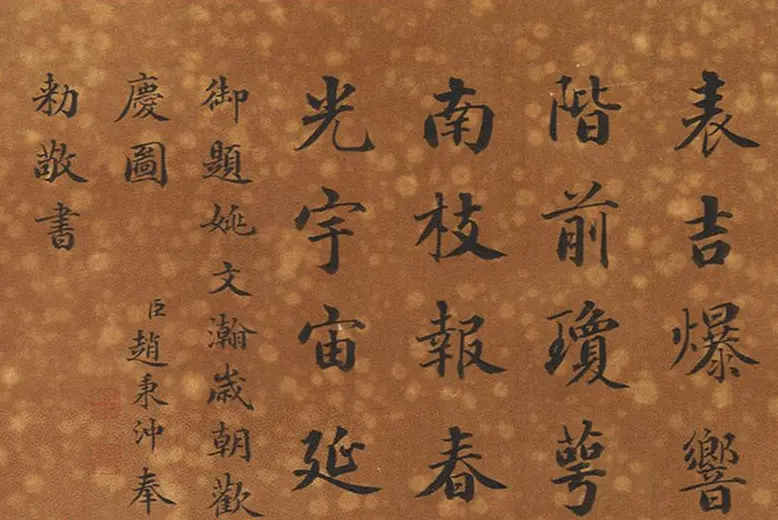 表吉爆響
階前瓊萼
南枝報春
光宇宙延
御題姚文瀚歲朝歡
慶圖
臣趙秉沖奉
勅敬書